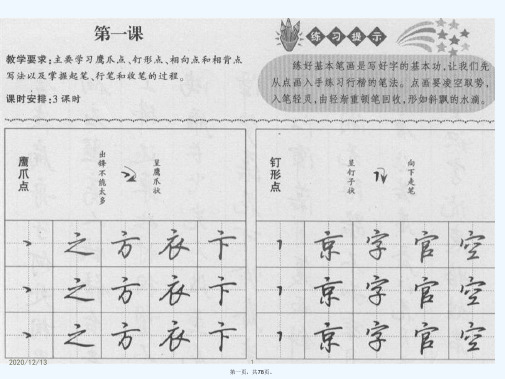 第一课
教学要求:主要学习鹰爪点、钉形点、相向点和相背点
写法以及掌握起笔、行笔和收笔的过程。
课时安排:3 课时
练习提示
练好基本笔画是写好字的基本功,让我们先
从点画入手练习行楷的笔法。点画要凌空取势,
入笔轻灵,由轻渐重顿笔回收,形如斜飘的水滴。
鹰爪点
出锋不能太多
呈鹰爪状
钉形点
呈钉子状
向下走笔
之 方 衣 卞
京 字 官 空
之 方 衣 卞
京 字 官 空
之 方 衣 卞
京 字 官 空
2020/12/13
1
第一页,共76页。